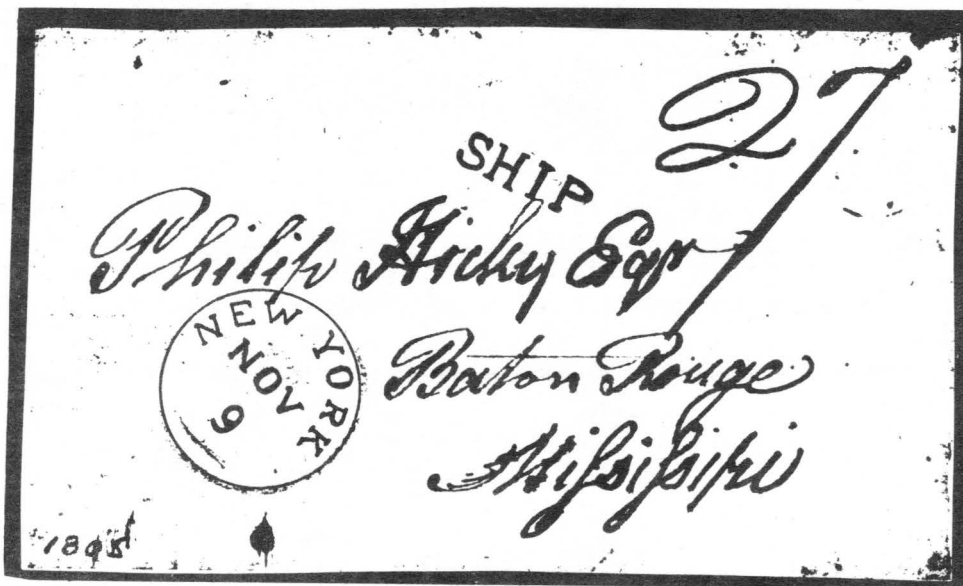 27
SHIP
Philip Hicky Esqr
NEW YORK
NOV
9
Baton Rouge
Missisipi